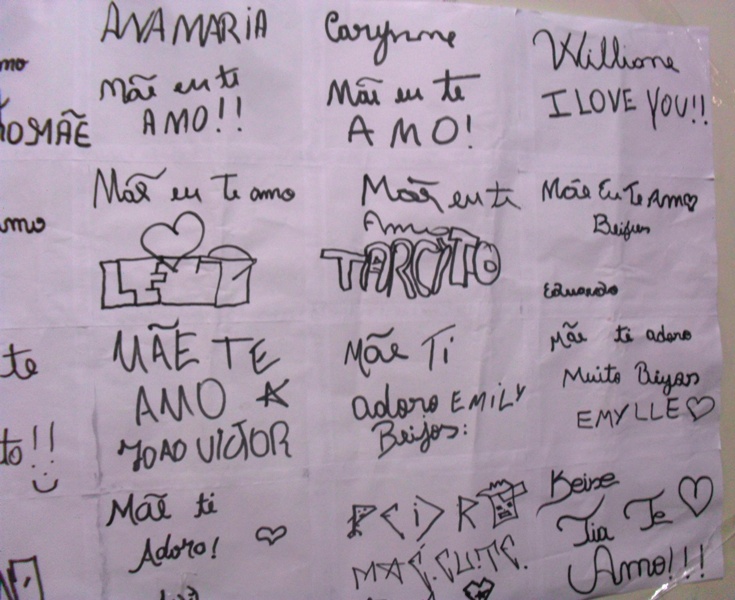 mo
OMÃE
amo
te
to!!
ANA MARIA
Mãe eu te
AMO!!
Mãe eu Te amo
MÃE TE
AMO
JOAO VICTOR
Mãe ti
Adoro!
Mãe eu te
A M O!
Mãe eu te
Amo
TARCITO
Mãe Ti
adoro EMILY
Beijos:
Willione
I LOVE YOU!!
Mãe Eu Te Amo
Beijus
Eduardo
Mãe te adoro
Muito Beijos
EMYLLE
Keise
Tia Te
Amo!!!